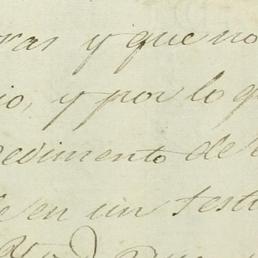 ras y que no
io, y por lo q
edimento de
en un testi